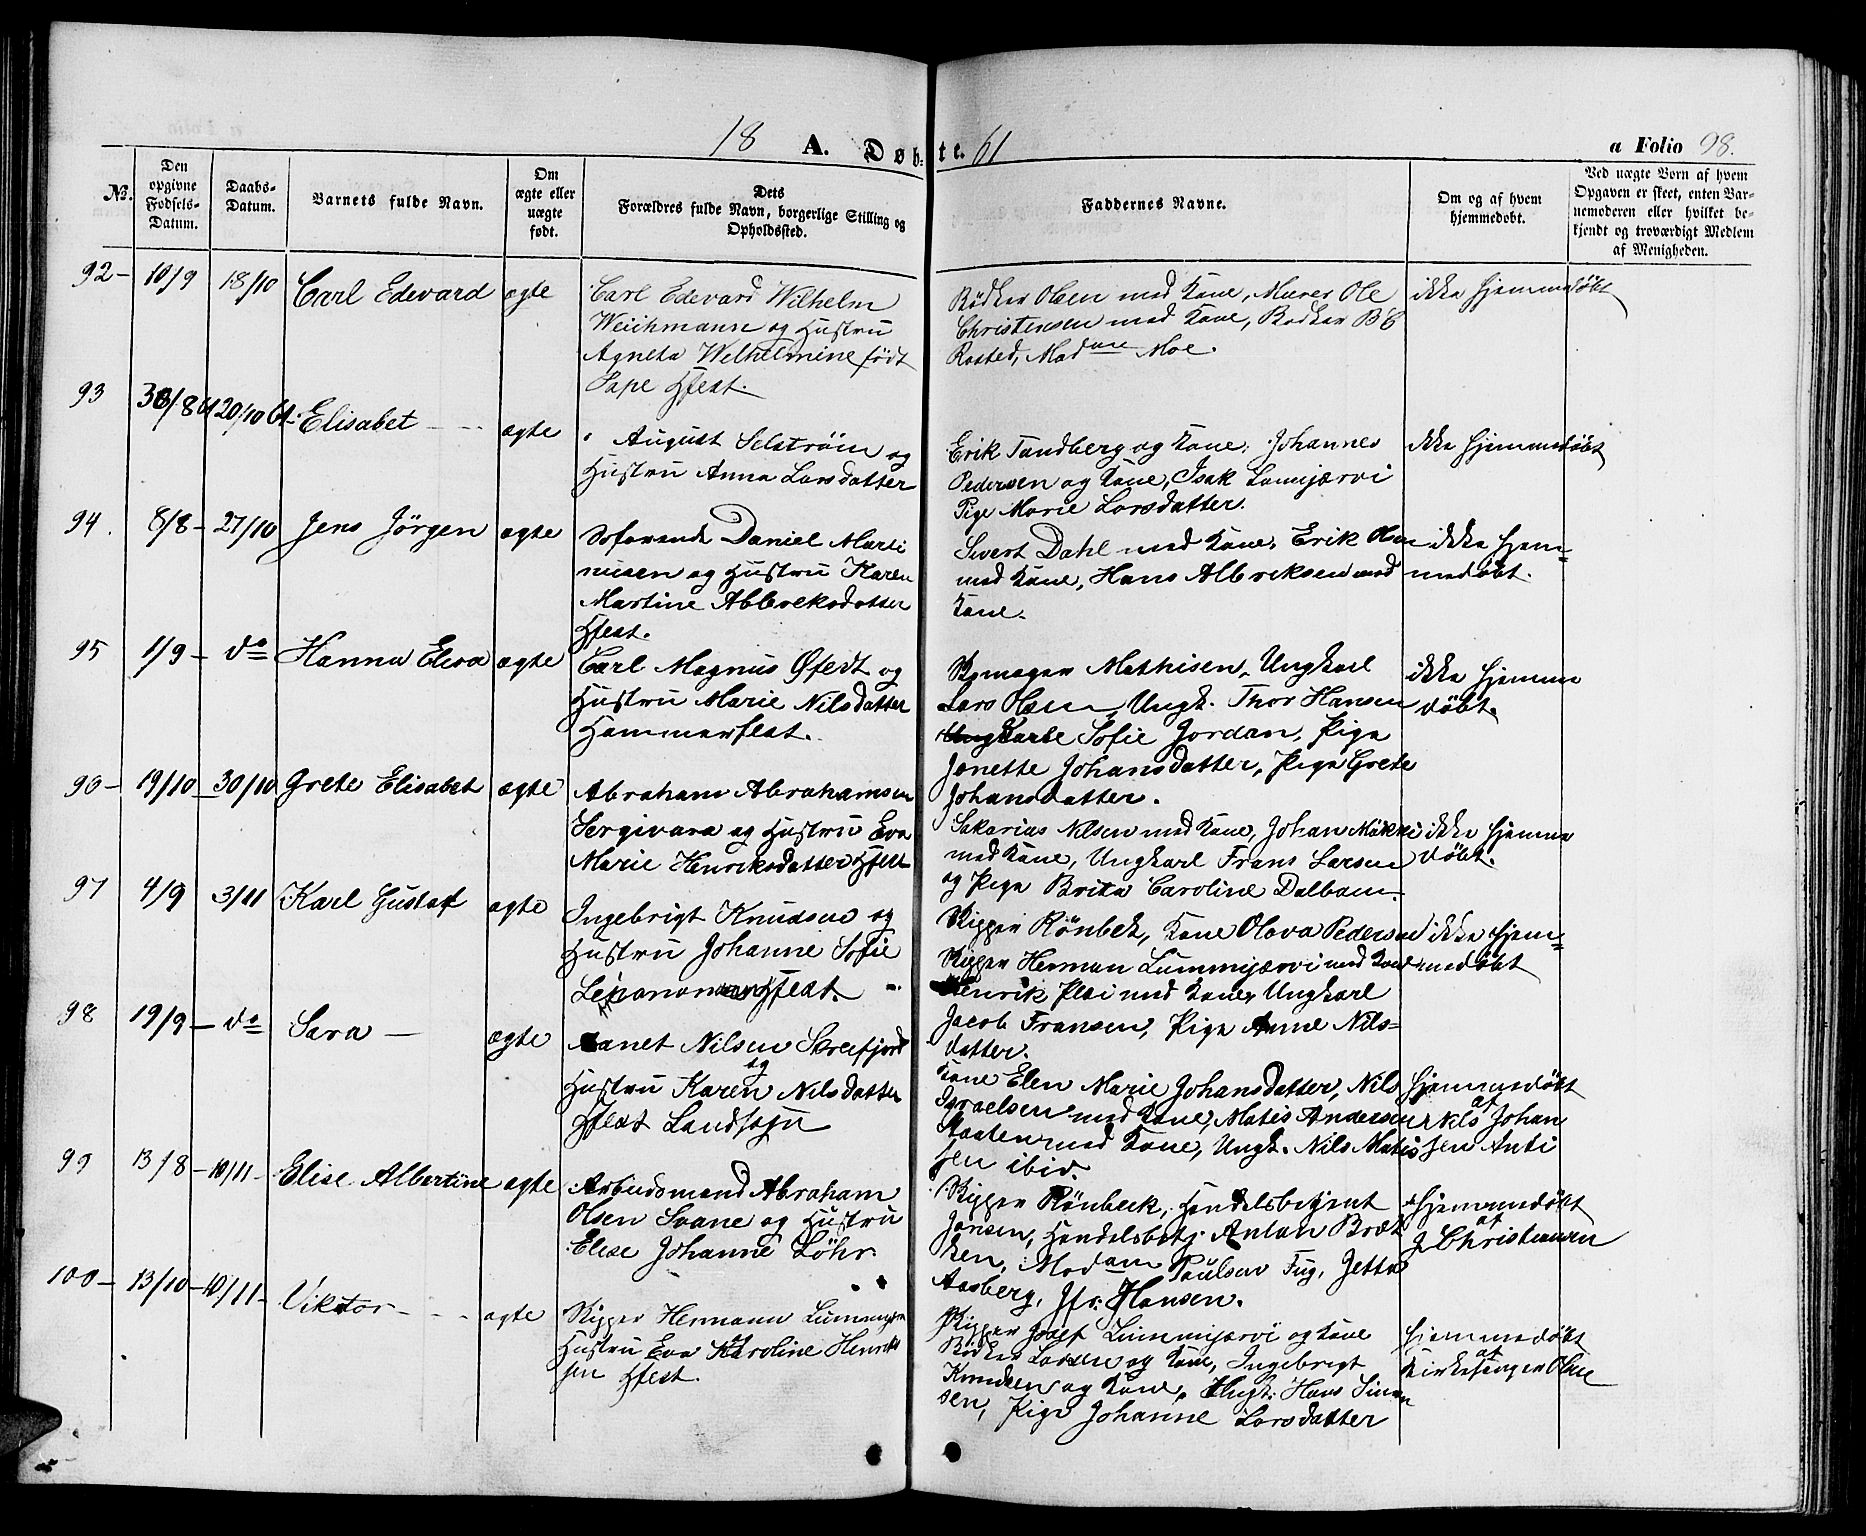 18 A. Døbte. 61
a Folio 98.
No.
Den opgivne Fødsels-Datum.
Daabs-Datum.
Barnets fulde Navn.
Om ægte eller uægte født.
Dets Forældres fulde Navn, borgerlige Stilling og Opholdssted.
Faddernes Navne.
Om og af hvem hjemmedøbt.
Ved uægte Børn af hvem Opgaven er skeet, enten Barnemoderen eller hvilket bekjendt og troværdigt Medlem af Menigheden.
92- 10/9 18/10 Carl Edevard ægte
Carl Edevard Wilhelm
Weichmann og Hustru
Agneta Wilhelmine født
Pape Hfest.
Bødker Olsen med Kone, Murer Ole
Christensen med Kone, Bødker B C
Rasted, Madame Moe.
ikke hjemmedøbt
93 30/8 61 20/10 61. Elisabet - - ægte
August Selstrøm og
Hustru Anna Larsdatter
Erik Tandberg og Kone, Johannes
Pedersen og Kone, Isak Lamijærvi
Pige Marie Larsdatter.
ikke hjemmedøbt
94. 8/8 - 27/10 Jens Jørgen ægte
Sofarende Daniel Marti
nusen og Hustru Karen
Martine Albreksdatter
Hfest.
Sivert Dahl med Kone, Erik Olsen
med Kone, Hans Albriksen med
Kone.
ikke hjem=
medøbt.
95 1/9 - do Hanna Elesa ægte
Carl Magnus Øfedt og
Hustru Marie Nilsdatter
Hammerfest.
Skomager Mathisen, Ungkarl
Lars Olsen, Ungk. Thor Hansen
Sofie Jordan, Pige
Janette Johansdatter, Pige Grete
Johansdatter.
ikke hjemme
døbt.
96- 19/10 - 30/10 Grete Elisabet ægte
Abraham Abrahamsen
Sergivara og Hustru Eva
Marie Henriksdatter Hfest
Sakarias Nilsen med Kone, Johan Mäkki
med Kone, Ungkarl Frans Larsen
og Pige Brita Caroline Dalbam.
ikke hjemme
døbt.
97 4/9 3/11 Karl Gustaf ægte
Ingebrigt Knudsen og
Hustru Johanne Sofie
Hfest.
Rigger Rönbek, Kone Olava Pedersen
Rigger Herman Lummijærvi med Kone
Henrik Plai med Kone, Ungkarl
Jacob Fransen, Pige Anne Nils=
datter.
ikke hjem=
medøbt
98 19/9 - do Sara - ægte
Nilsen Skreifjord
og
Hustru Karen Nilsdatter
Hfest Landsogn
Kone Elen Marie Johansdatter, Nils
Israelsen med Kone, Matis Andersen
med Kone, Ungk. Nils Matis
sen ibid.
hjemmedøbt
af
Nils Johan
sen Anti
99 13/8 - 10/11 - Elise Albertine ægte
Arbeidsmand Abraham
Olsen Svane og Hustru
Elise Johanne Löhr.
Rigger Rönbeck, Handelsbetjent
Jansen, Handelsbetj. Anton Bræk
ken, Madam Paulsen Fug, Jette
Aasberg, Jfr. Hansen.
hjemmedøbt
af
J Christiansen
100- 13/10 - 10/11 - Viktor - - - ægte
Rigger Hermann Lummijær
Hustru Eva Karoline Henrik
sen Hfest.
Rigger Josef Lummijærvi og Kone
Bödker Larsen og Kone, Ingebrigt
Knudsen og Kone, Ungk. Hans Simon
sen, Pige Johanne Larsdatter
hjemmedøbt
af
Kirkesanger Olsen